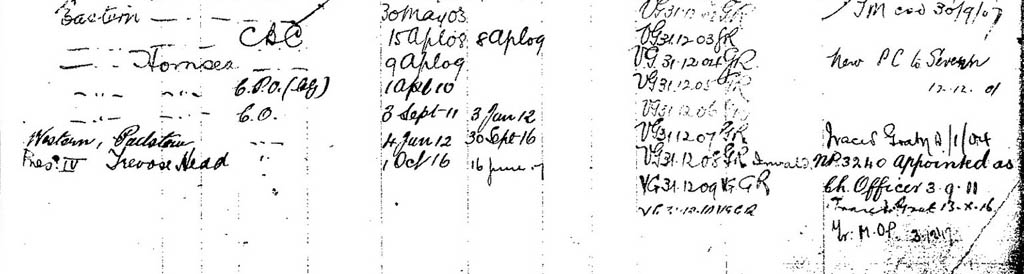 Eastern 30 May 03 VG 31.12 GR TM ced 30/9/07
C&C 15 Apl 08 8 Apl 09 VG 31.12 03 GR
Hornsea 9 Apl 09 VG 31.12 04 GR New PC to Severn
C.P.O. (Ag) 1 Apl 10 VG 31.12 05 GR 12.12.01
C.O. 3 Sept 11 3 Jan 12 VG 31.12 06 GR
Western, Padstow 4 Jan 12 30 Sept 16 VG 31.12 07 GR
Pres. IV Trevose Head 1 Oct 16 16 June 17 VG 31.12 08 GR NP 3240 appointed as
VG 31.12 09 VG GR Ch. Officer 3.9.11
13.X.16